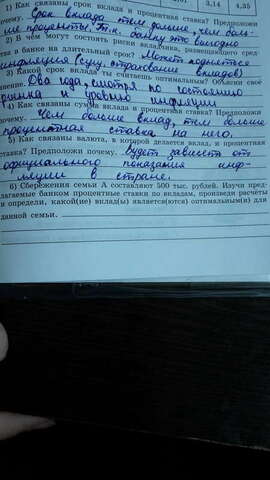 3,14 4,35
1) Как связаны срок вклада и процентная ставка? Предположи
почему. Срок вклада тем дольше, чем боль-
ше проценты, т.к. банку это выгодно
2) В чём могут состоять риски вкладчика, размещающего сред-
ства в банке на длительный срок? Может подняться
инфляция (сущ. страхование вкладов)
3) Какой срок вклада ты считаешь оптимальным? Объясни своё
Два года, смотря по состоянию
рынка и уровню инфляции
4) Как связаны сумма вклада и процентная ставка? Предположи
почему. Чем больше вклад, тем больше
процентная ставка на него.
5) Как связаны валюта, в которой делается вклад, и процентная
ставка? Предположи почему. Будет зависеть от
официального показания инф-
ляции в стране.
6) Сбережения семьи А составляют 500 тыс. рублей. Изучи пред-
лагаемые банком процентные ставки по вкладам, произведи расчёты
и определи, какой(ие) вклад(ы) является(ются) оптимальным(и) для
данной семьи.